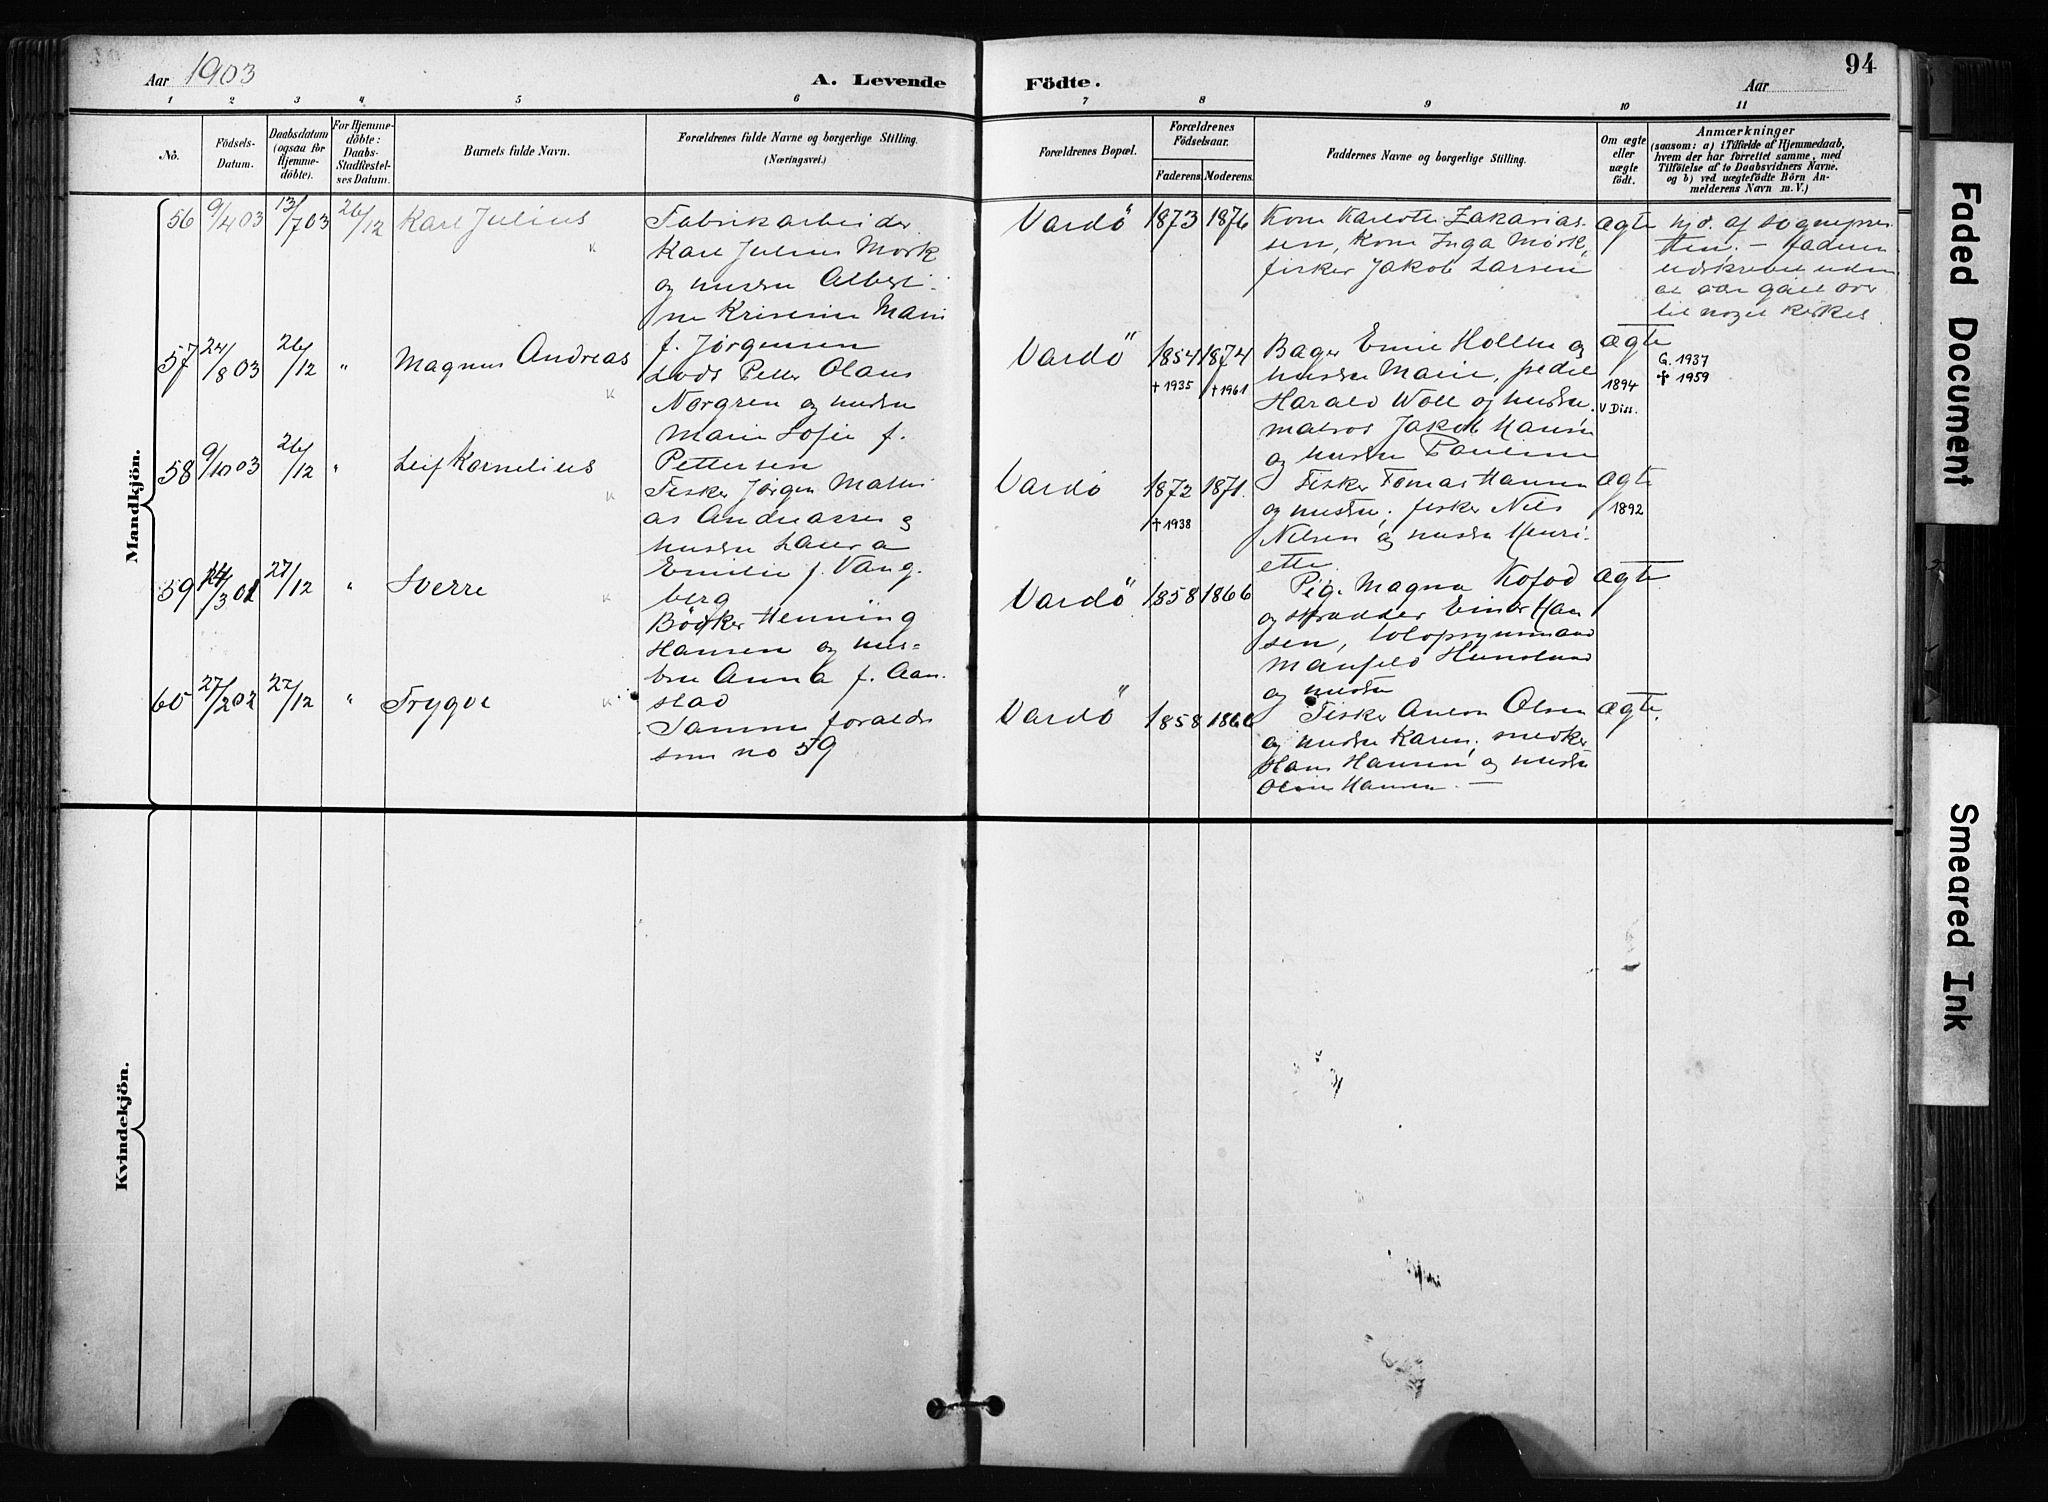 Aar 1903
A. Levende
Födte.
Aar
94
1 2 3 4 5 6 7 8 9 10 11
No.
Födsels-
Datum.
Daabsdatum
(ogsaa for
Hjemme-
döbte).
For Hjemme-
döbte:
Daabs-
Stadfæstel-
ses Datum.
Barnets fulde Navn.
Forældrenes fulde Navne og borgerlige Stilling.
(Næringsvei.)
Forældrenes Bopæl.
Forældrenes
Födselsaar.
Faderens.
Moderens.
Faddernes Navne og borgerlige Stilling.
Om ægte
eller
uægte
födt.
Anmærkninger
(saasom: a) i Tilfælde af Hjemmedaab,
hvem der har forrettet samme, med
Tilföielse af to Daabsvidners Navne,
og b) ved uægtefödte Börn An-
melderens Navn m. V.)
Mandkjön.
56 9/4 03 13/7 03 26/12 Karl Julius
Fabrikarbeider
Karl Julius Mørk
og hustru Alberti-
ne Kristine Marie
f. Jørgensen
Vardö 1873 1876
Kone Karlotte Zakarias-
sen, kone Inga Mørk,
fisker Jakob Larsen
ægte
hjd. af sognepres-
ten. - faderen
udskrevet uden
at være gået over
til noget kirkes.
57 24/8 03 26/12 " Magnus Andreas
Lods Petter Olaus
Norgren og hustru
Marie Sofie f.
Pettersen
Vardö 1854 1874
† 1935 † 1961
Bager Emil Holthe og
hustru Marie, pedel
Harald Wold og hustru,
matros Jakob Hansen
og hustru Pauline
ægte
1894
V Diss.
G. 1937
† 1959
58 9/10 03 26/12 " Leif Kornelius
Fisker Jørgen Mathi-
as Andreassen og
hustru Laura
Emilie f. Vang-
berg
Vardö 1872 1871.
† 1938
Fisker Tomas Hansen
og hustru, fisker Nils
Nilsen og hustru Henri-
ette.
ægte
1892
59 /3 01 27/12 " Sverre
Bödker Henning
Hansen og hus-
tru Anna f. Aan-
stad
Vardö 1858 1866
Pige Magna Kofod
og Einar Han-
sen,
Manfeld
og hustru
ægte
60 27/2 02 27/12 " Trygve
Samme forældre
som no 59
Vardö 1858 1866
Fisker Anton Olsen
og hustru Karen, snedker
Hans Hansen og hustru
Oline Hansen. -
ægte.
Kvindekjön.
Faded Document
Smeared Ink